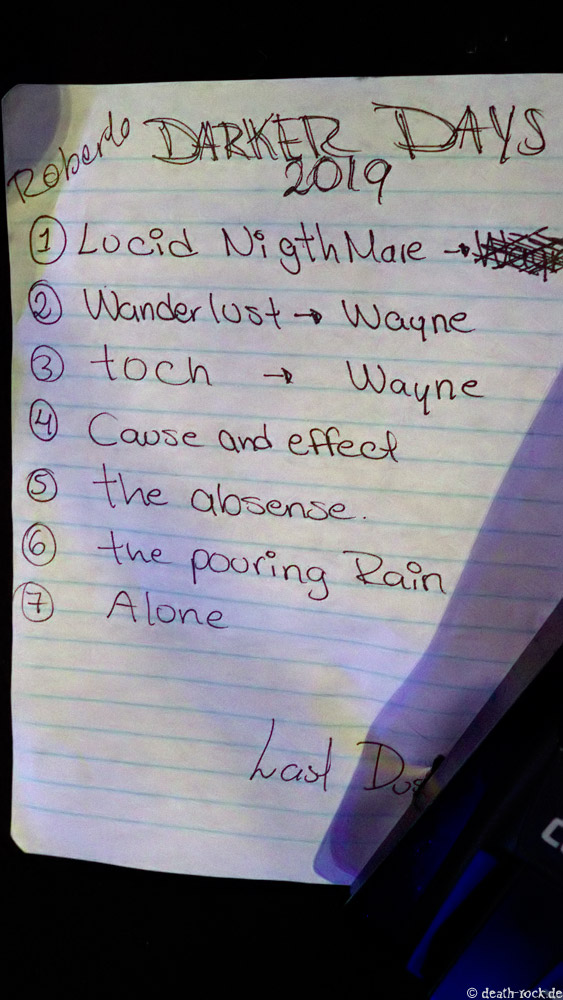 Roberdo DARKER DAYS
2019
1 Lucid NigthMare →
2 Wanderlust → Wayne
3 toch → Wayne
4 Cause and effect
5 the absense.
6 the pouring Rain
7 Alone
Last
© death-rock.de